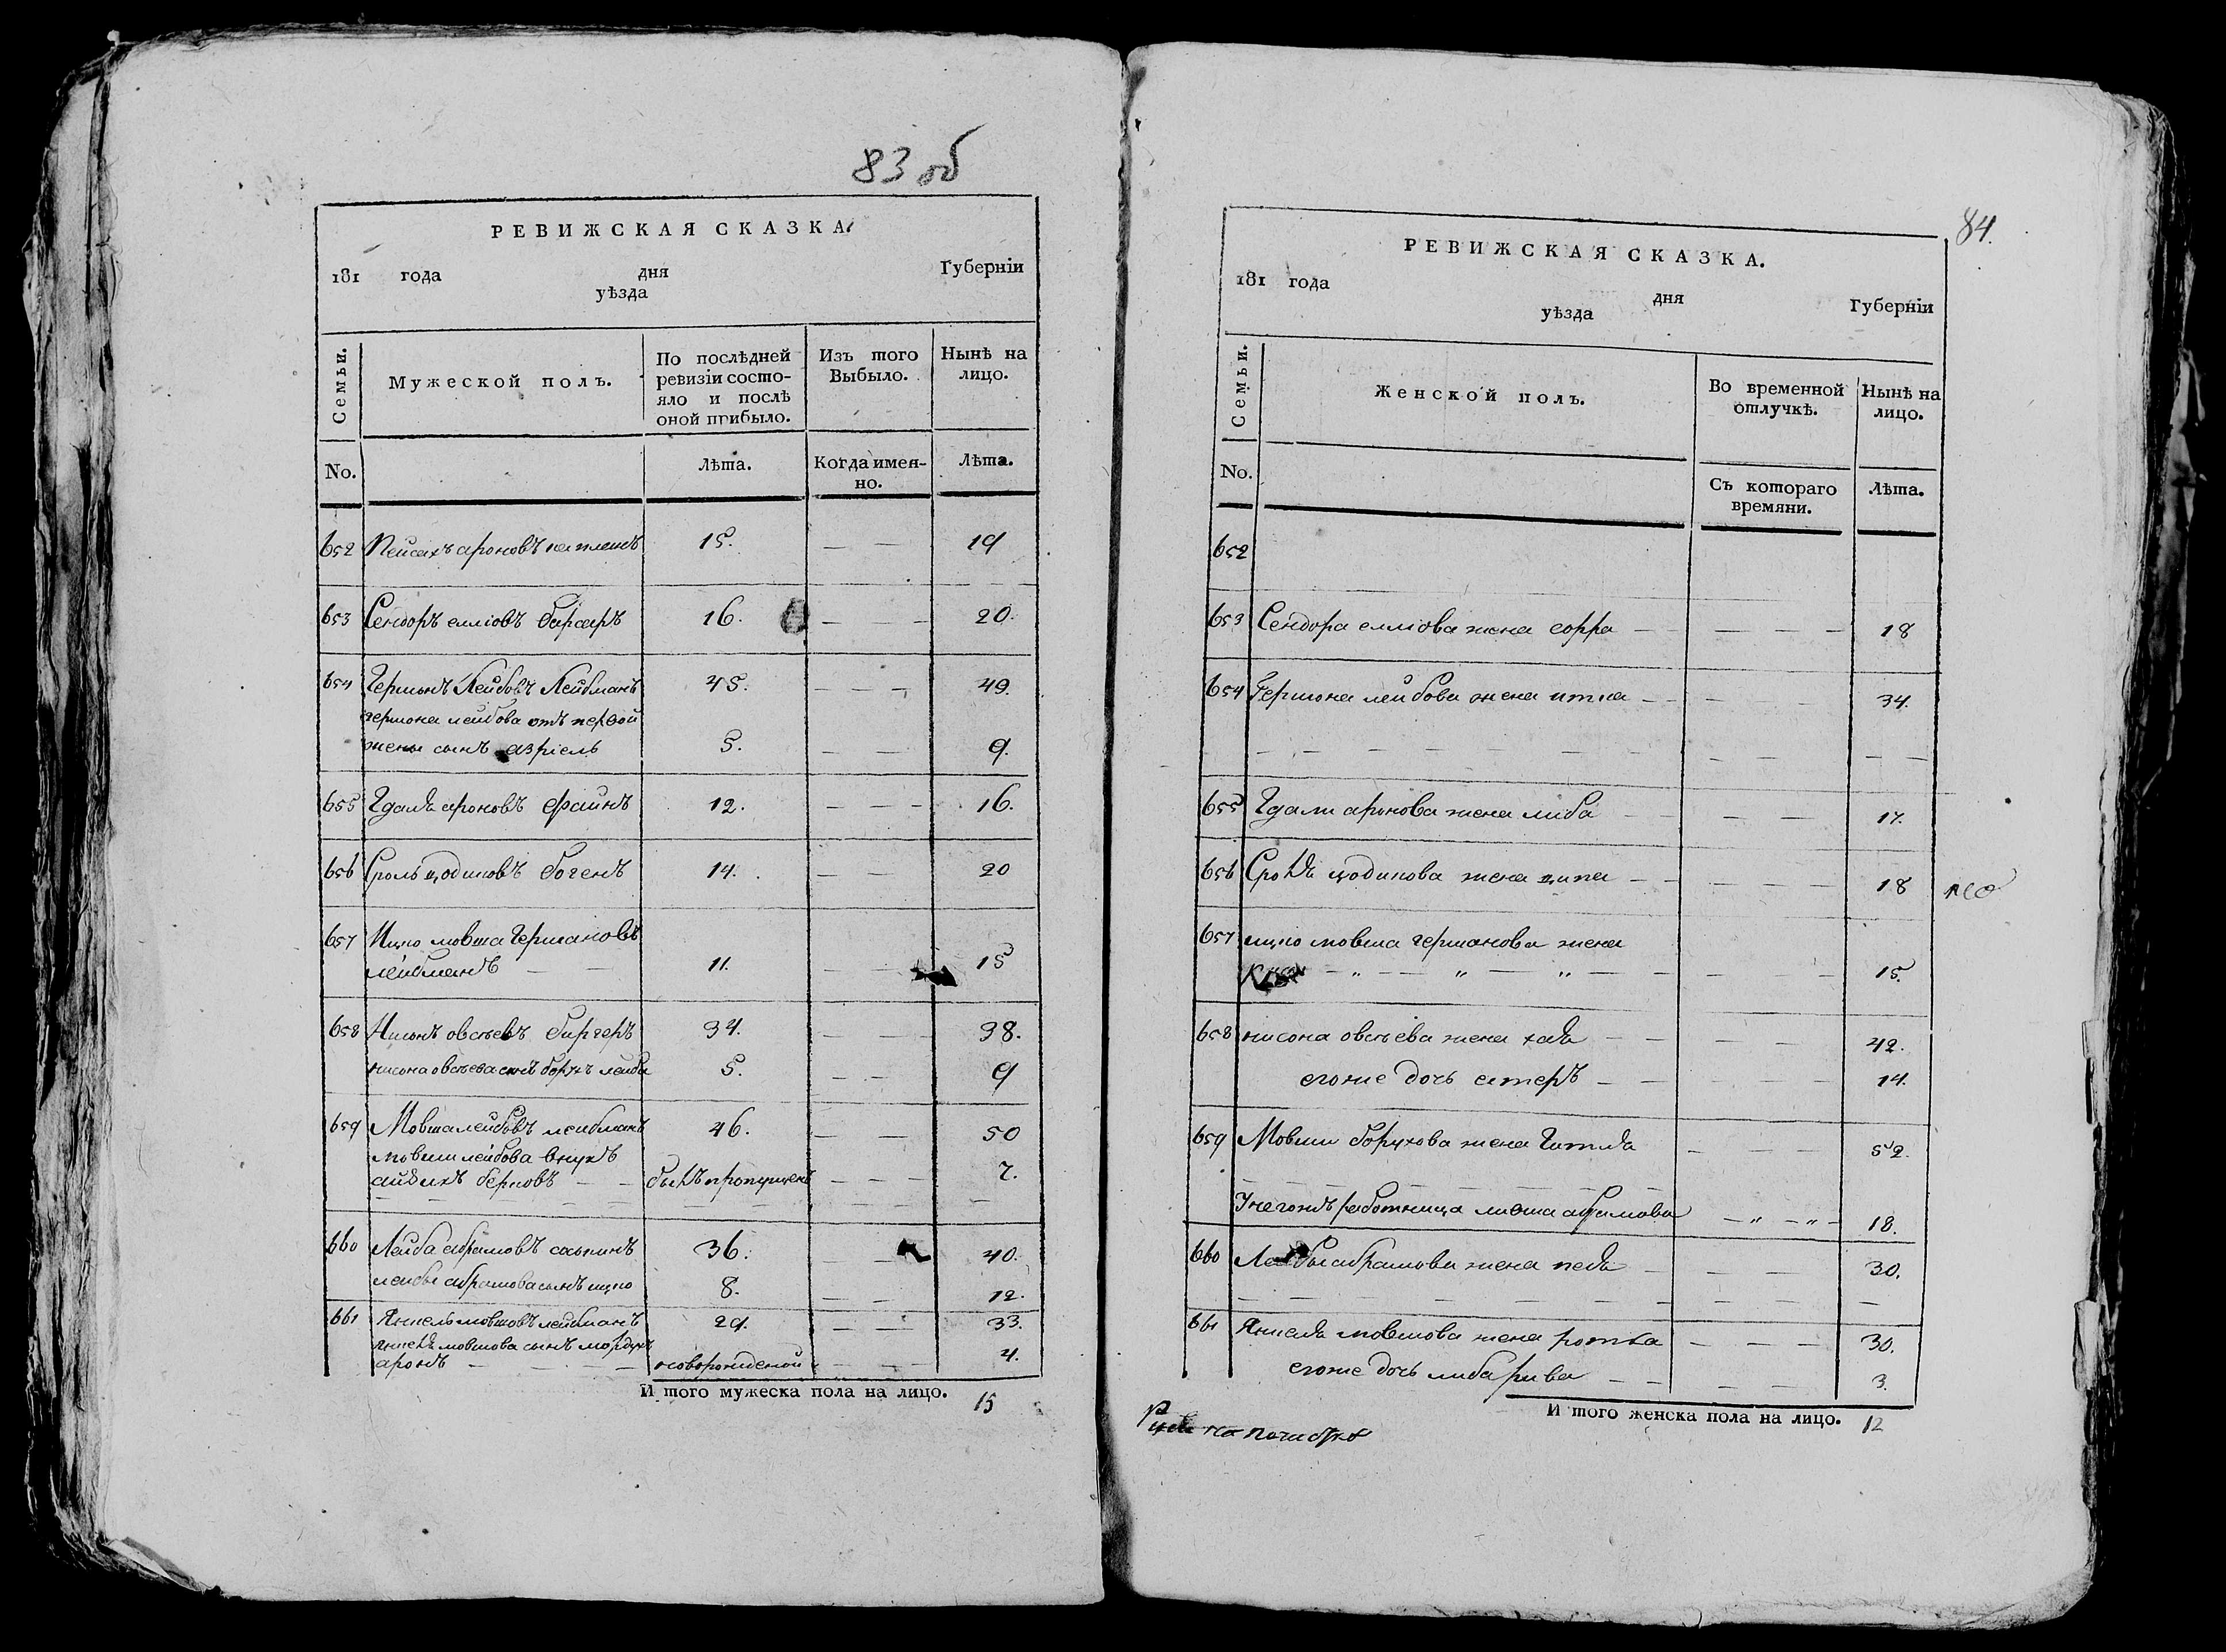 83 об
РЕВИЖСКАЯ СКАЗКА.
181 года дня Губерніи
уѣзда
Семьи. Мужеской полъ. По послѣдней ревизіи состояло и послѣ оной прибыло. Изъ того Выбыло. Нынѣ на лицо.
No. Лѣта. Когда именно. Лѣта.
652 Пейсахъ ароновъ капланъ 15. — — 19
653 Сендоръ елліовъ 16. — — 20.
654 Гершонъ Лейбовъ Лейбманъ 45. — — 49.
гершона лейбова отъ первой
жены сынъ азріель 5. — — 9.
655 Гдаль ароновъ файнъ 12. — — — 16.
656 Сроль цодиковъ богенъ 14. — — 20
657 Ицко мовша Гершановъ
лейбманъ — — 11. — — 15
658 Нисонъ овсѣевъ бургеръ 34. — — 38.
нисона овсѣева сынъ борухъ лейба 5. — — 9
659 Мовша лейбовъ лейбманъ 46. — — 50
мовши лейбова внукъ
айзикъ берковъ — — былъ пропущенъ — — — 7.
660 Лейба абрамовъ 36. — — 40.
лейбы абрамова сынъ ицко 8. — — 12.
661 Янкель мовшовъ лейбманъ 29. — — 33.
янкеля мовшова сынъ мордухъ
аронъ — — — новорожденой — — — 4.
И того мужеска пола на лицо. 15
84.
РЕВИЖСКАЯ СКАЗКА.
181 года дня Губерніи
уѣзда
Семьи. Женской полъ. Во временной отлучкѣ. Нынѣ на лицо.
No. Съ котораго времяни. Лѣта.
652
653 Сендора елліова жена сорра — — — — 18
654 Гершона лейбова жена итка — — — — 34.
655 Гдали аронова жена либа — — — 17.
656 Сроля цодикова жена ципа — — — — — 18
657 ицко мовша гершонова жена
— „ — — „ — „ — — — — 15.
658 нисона овсѣева жена хая — — — — 42.
егоже дочь естеръ — — — — — 14.
659 Мовши борухова жена Гитля — — — 52.
Унегожъ работница абрамова — „ — „ — 18.
660 Лейбы абрамова жена — — — — 30.
661 Янкеля мовшова жена ротка — — — 30.
егоже дочь либа рива — — — — 3.
И того женска пола на лицо. 12